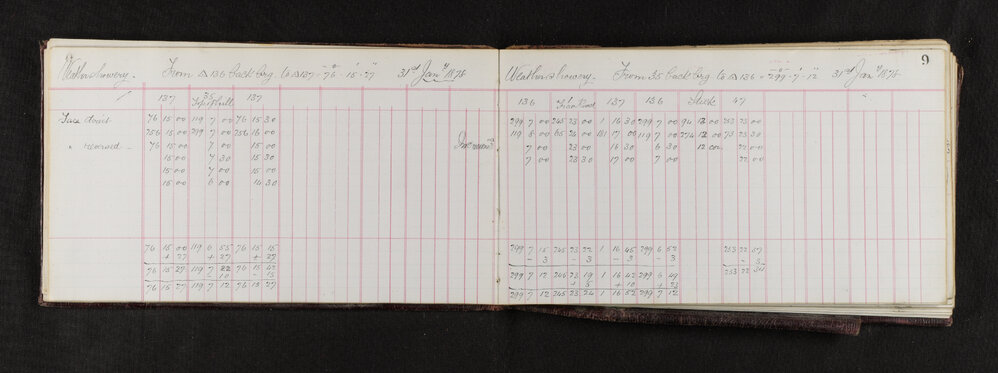 Weather showery. From △ 136 back brg. to △ 137 = 76° · 15' · 27" 31st Jany. 1876
137 35 137
Top of hull
Face direct 76 15 00 119 7 00 76 15 30
256 15 00 299 7 00 256 16 00
" reversed 76 15 00 7 00 15 00
15 00 7 30 15 30
15 00 7 00 15 00
15 00 6 00 14 30
76 15 00 119 6 55 76 15 15
+ 27 + 27 + 27
76 15 27 119 7 22 76 15 42
- 10 - 15
76 15 27 119 7 12 76 15 27
Weather showery. From 35 back brg. to △ 136 = 299° · 7' · 12" 31st Jany. 1876
9
136 137 136 Stick 47
299 7 00 245 23 00 1 16 30 299 7 00 94 12 00 253 23 00
119 8 00 65 24 00 181 17 00 119 7 00 274 12 00 73 23 30
7 00 23 00 16 30 6 30 12 00 22 00
7 00 23 30 17 00 7 00 22 00
299 7 15 245 23 22 1 16 45 299 6 52 253 22 37
- 3 - 3 - 3 - 3 - 3
299 7 12 245 23 19 1 16 42 299 6 49 253 22 34
+ 5 + 10 + 23
299 7 12 245 23 24 1 16 52 299 7 12